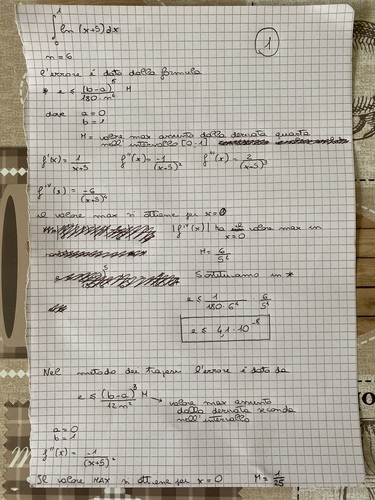 ∫₀¹ ln(x+5) dx
1
n = 6
l'errore è dato dalla formula
* e ≤ (b-a)⁵ / 180·n⁴ M
dove a = 0
b = 1
M = valore max assunto dalla derivata quarta
nell'intervallo [0-1]
f'(x) = 1/(x+5) f''(x) = -1/(x+5)² f'''(x) = 2/(x+5)³
f^IV(x) = -6/(x+5)⁴
il valore max si ottiene per x = 0
|f^IV(x)| ha valore max in
x = 0
M = 6/5⁴
Sostituiamo in *
e ≤ 1/(180·6⁴) 6/5⁴
e ≤ 4,1·10⁻⁸
Nel metodo dei trapezi l'errore è dato da
e ≤ (b-a)³ / 12n² M → valore max assunto
dalla derivata seconda
nell'intervallo
a = 0
b = 1
f''(x) = -1/(x+5)²
Il valore MAX si ottiene per x = 0 M = 1/25